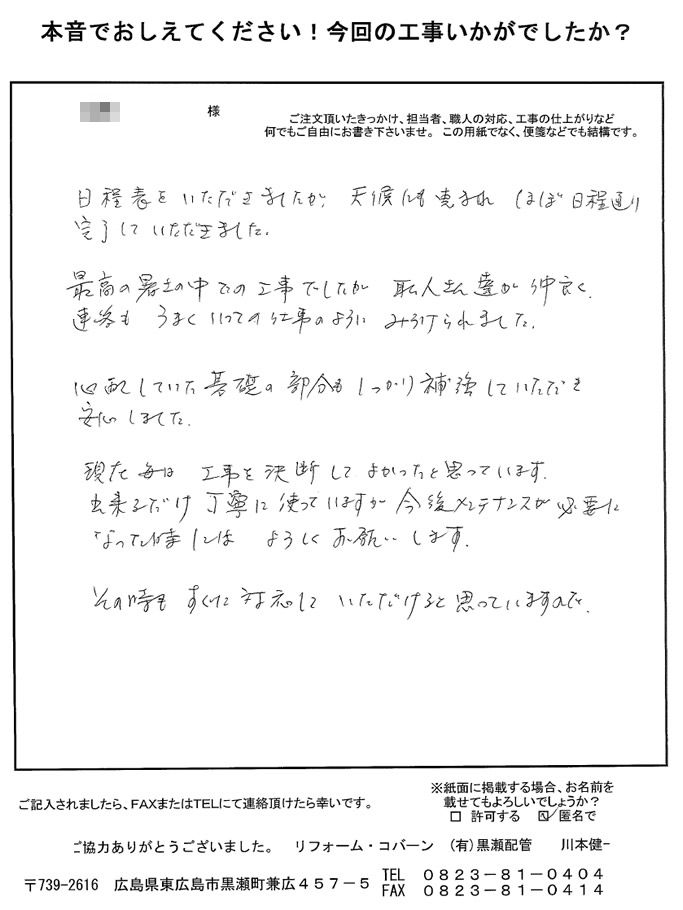 本音でおしえてください！今回の工事いかがでしたか？
様
ご注文頂いたきっかけ、担当者、職人の対応、工事の仕上がりなど
何でもご自由にお書き下さいませ。この用紙でなく、便箋などでも結構です。
日程表をいただきましたが、天候にも恵まれ ほぼ日程通り
完了していただきました。
最高の暑さの中での工事でしたが 職人さん達が仲良く、
連絡も うまくいっての仕事のように みうけられました。
心配していた基礎の部分もしっかり補強していただき
安心しました。
現在 母は 工事を決断してよかったと思っています。
出来るだけ 丁寧に使っていますが 今後メンテナンスが必要に
なった時には よろしくお願いします。
その時も すぐに対応して いただけると思っていますので。
ご記入されましたら、FAXまたはTELにて連絡頂けたら幸いです。
※紙面に掲載する場合、お名前を
載せてもよろしいでしょうか？
□ 許可する ☑匿名で
ご協力ありがとうございました。 リフォーム・コバーン （有）黒瀬配管 川本健一
〒739-2616 広島県東広島市黒瀬町兼広４５７－５
TEL ０８２３－８１－０４０４
FAX ０８２３－８１－０４１４